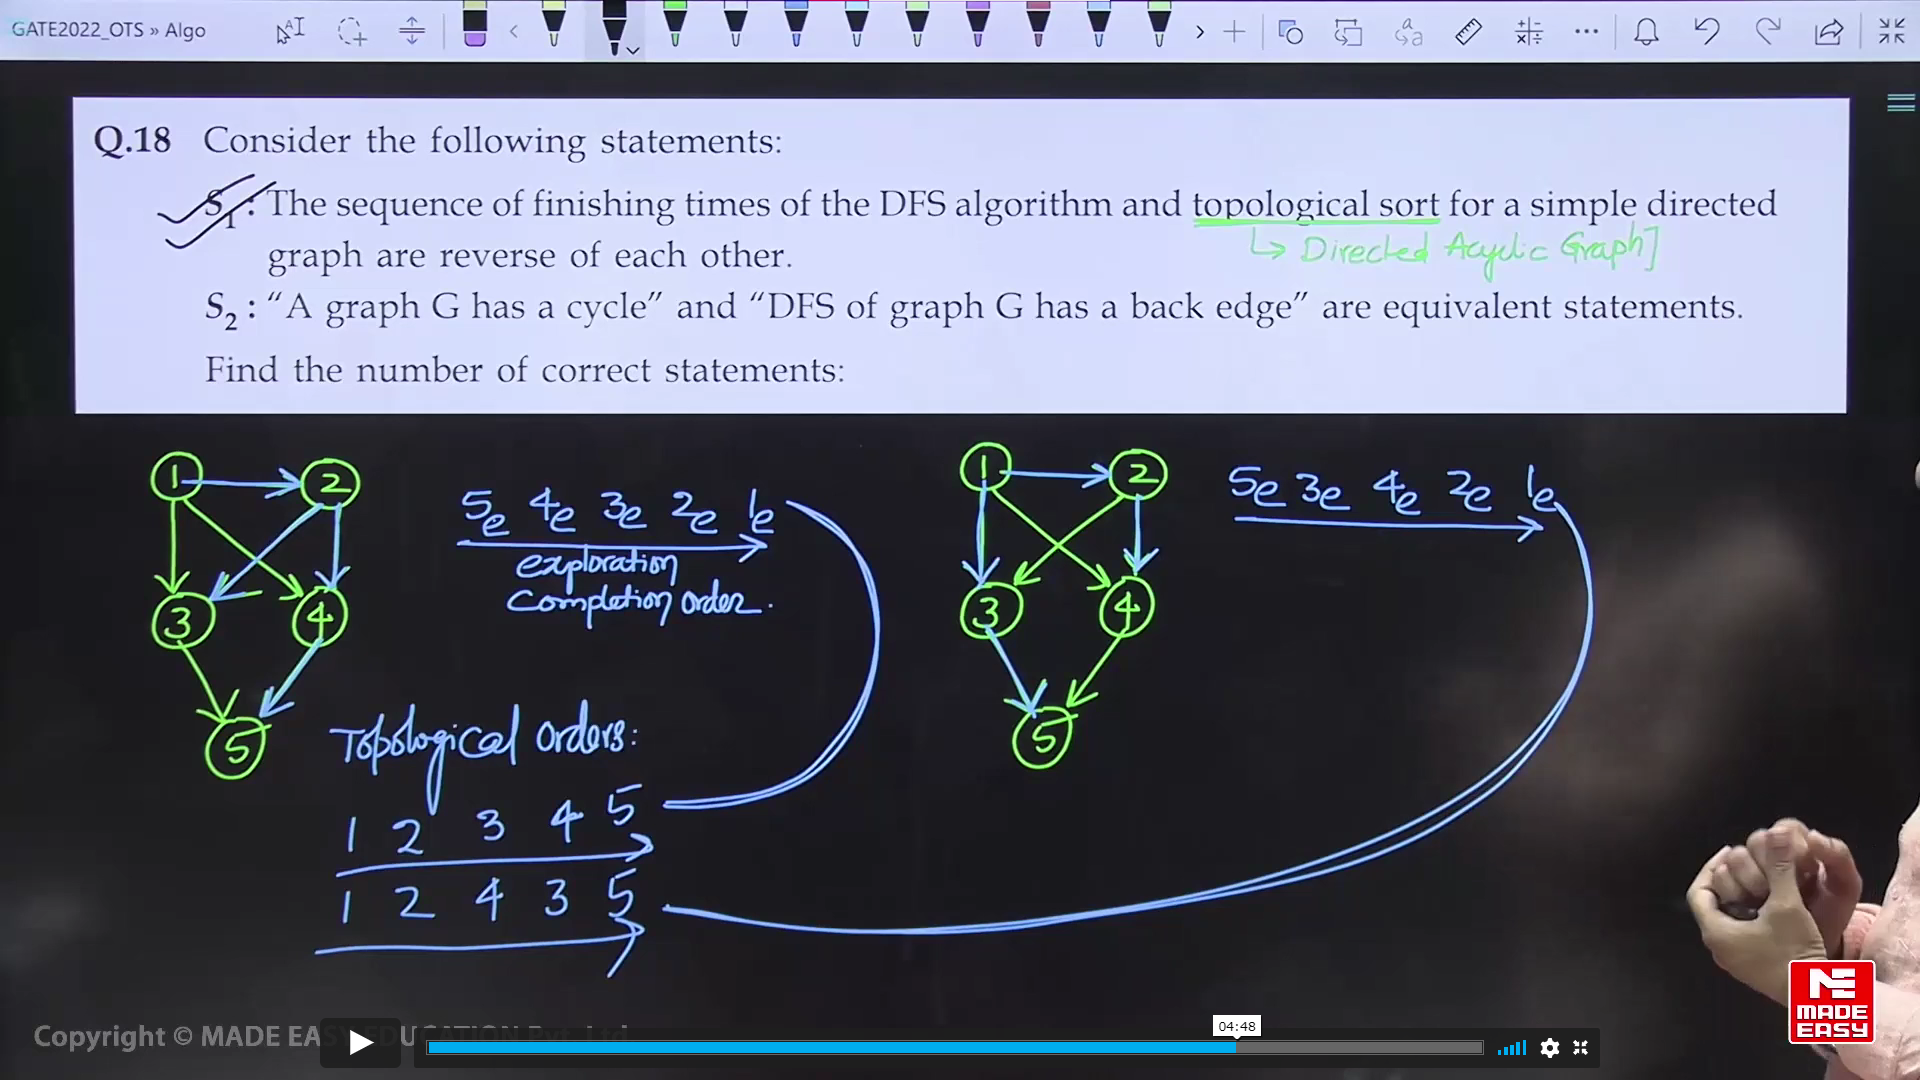 GATE2022_OTS » Algo
Q.18 Consider the following statements:
S1 : The sequence of finishing times of the DFS algorithm and topological sort for a simple directed
graph are reverse of each other.
↳ Directed Acyclic Graph]
S2 : “A graph G has a cycle” and “DFS of graph G has a back edge” are equivalent statements.
Find the number of correct statements:
1 2
3 4
5
5e 4e 3e 2e 1e
exploration
Completion order.
1 2
3 4
5
5e 3e 4e 2e 1e
Topological orders:
1 2 3 4 5
1 2 4 3 5
Copyright © MADE EASY EDUCATION Pvt. Ltd
04:48
ME
MADE
EASY